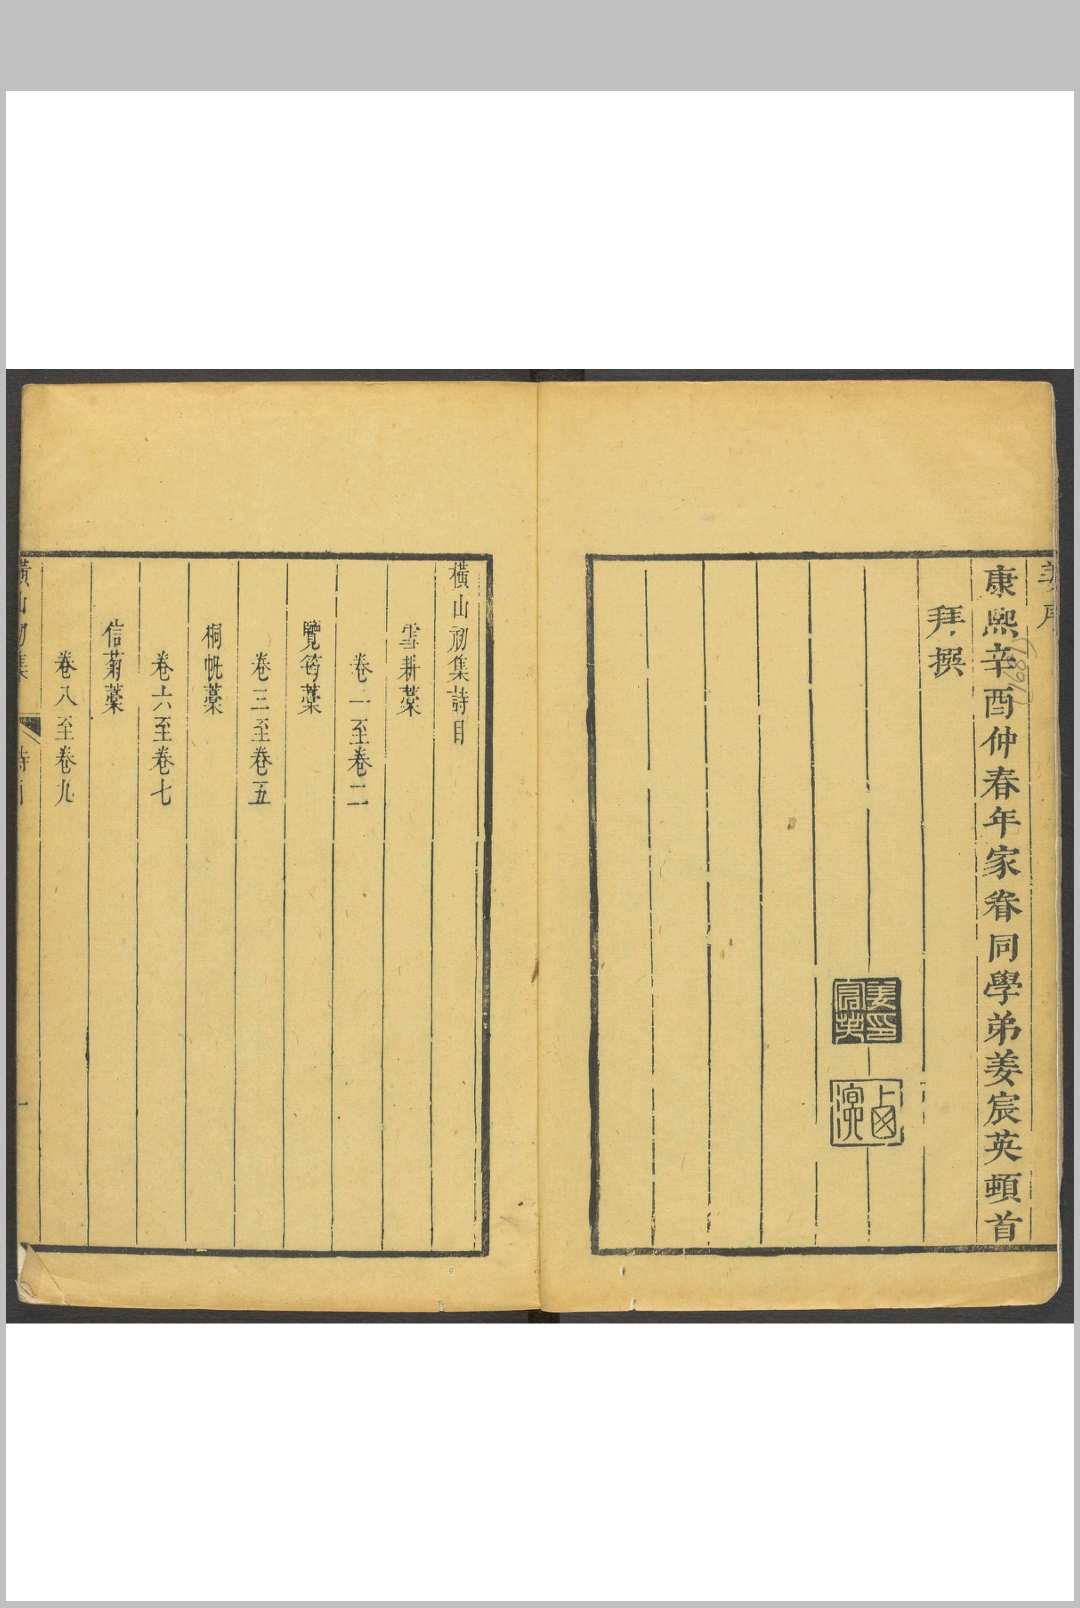 康熙辛酉仲春年家眷同學弟姜宸英頓首
拜撰
姜宸英印
橫山初集詩目
雪耕藁
卷一至卷二
覽筠藁
卷三至卷五
桐帆藁
卷六至卷七
信菊藁
卷八至卷九
橫山初集
詩目
一